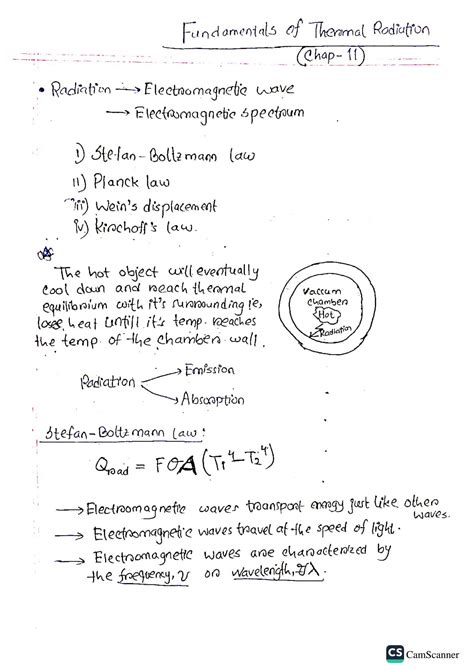 Fundamentals of Thermal Radiation
(Chap-11)
• Radiation → Electromagnetic wave
→ Electromagnetic spectrum
i) Stefan-Boltzmann law
ii) Planck law
iii) Wein's displacement
iv) Kirchoff's law.
The hot object will eventually
cool down and reach thermal
equilibrium with it's surrounding ie,
lose heat untill it's temp. reaches
the temp of the chamber wall.
Vaccum
chamber
Hot
Radiation
Radiation → Emission
→ Absorption
Stefan-Boltzmann law:
Qrad = FσA (T₁⁴-T₂⁴)
→ Electromagnetic waves transport energy just like other
waves.
→ Electromagnetic waves travel at the speed of light.
→ Electromagnetic waves are characterized by
the frequency, ν or wavelength, λ.
CS CamScanner